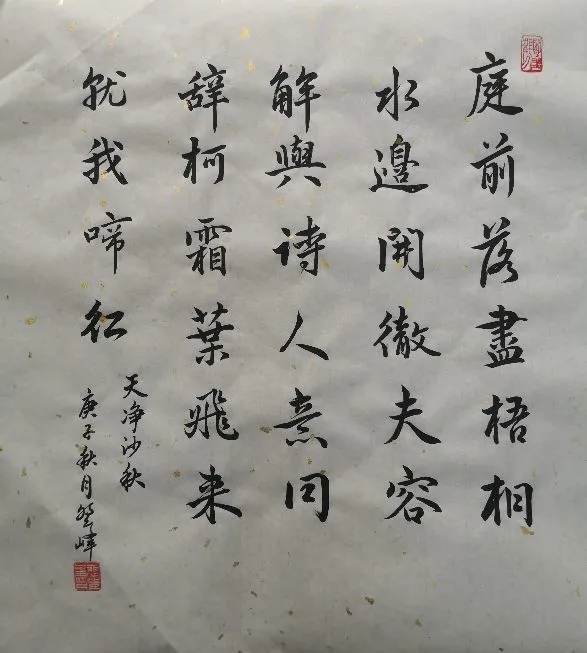 庭前落盡梧桐
水邊開徹夫容
解與诗人意同
辞柯霜葉飛来
就我啼红
天净沙秋
庚子秋月